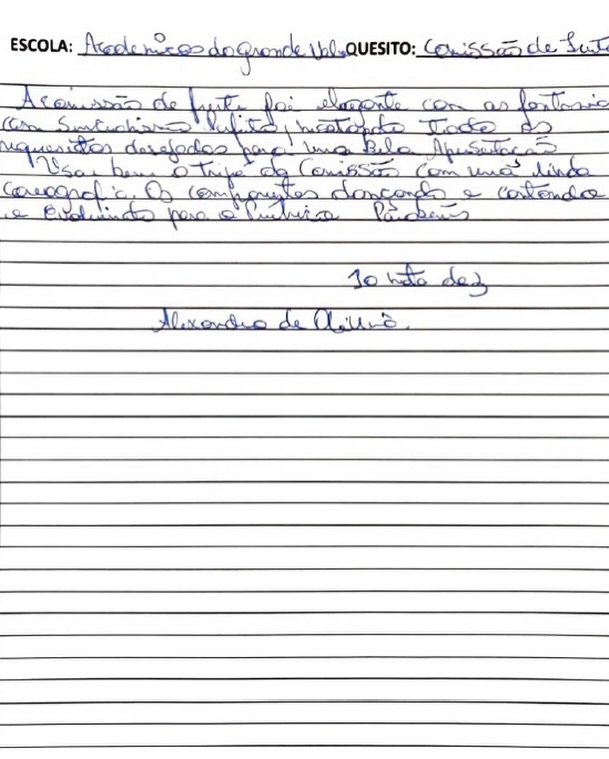 ESCOLA: Academicos do Grande Val QUESITO: Comissão de Frente
A comissão de frente foi elegante com as fantasia
com Sincronismo Perfeito, mostando Todos os
requesitos desejados para uma Bela Apresentação
Usou bem o tripé da Comissão com uma linda
Coreografia. Os componentes dançando e cantando
e evoluindo para o Publico Parabens
10 nota dez
Alexandre de